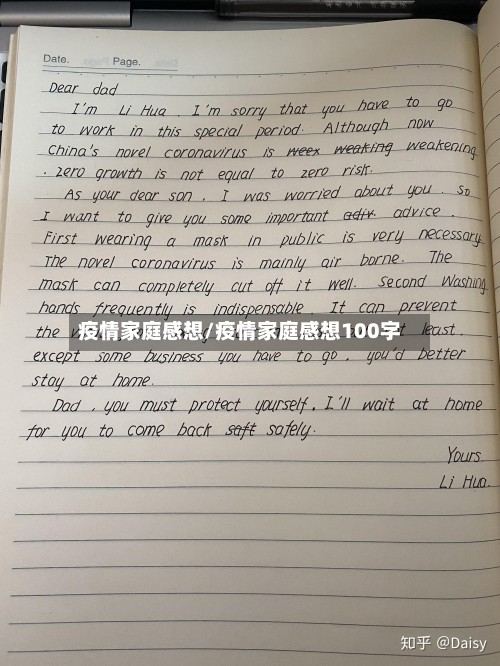 Date. Page.
Dear dad
I'm Li Hua. I'm sorry that you have to go
to work in this special period. Although now
China's novel coronavirus is weex weaking weakening
. zero growth is not equal to zero risk.
As your dear son, I was worried about you. So
I want to give you some important adiv. advice.
First wearing a mask in public is very necessary
The novel coronavirus is mainly air borne. The
mask can completely cut off it well. Second Washing
hands frequently is indispensable. It can prevent
the
疫情家庭感想/疫情家庭感想100字
least.
except some business you have to go. you'd better
stay at home.
Dad, you must protect yourself. I'll wait at home
for you to come back saft safely.
Yours.
Li Hua.
知乎 @Daisy